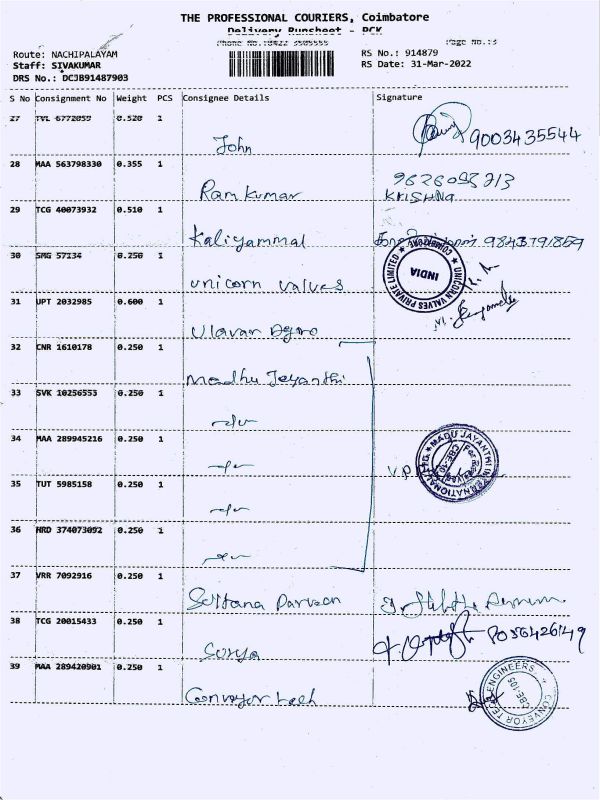 THE PROFESSIONAL COURIERS, Coimbatore
Delivery Runsheet - PCK
Page No.:3
Route: NACHIPALAYAM
RS No.: 914879
Staff: SIVAKUMAR
RS Date: 31-Mar-2022
DRS No.: DCJB91487903
S No Consignment No Weight PCS Consignee Details Signature
27 TVL 6772059 0.520 1
John 9003435544
28 MAA 563798330 0.355 1
Ram Kumar KRISHNA
29 TCG 40073932 0.510 1
Kaliyammal
30 SMG 57134 0.250 1
unicorn valves
UNICORN VALVES PRIVATE LIMITED COIMBATORE INDIA
31 UPT 2032985 0.600 1
Ulavan Agro
32 CNR 1610178 0.250 1
Madhu Jayanthi
33 SVK 10256553 0.250 1
34 MAA 289945216 0.250 1
MADU JAYANTHI INTERNATIONAL
35 TUT 5985158 0.250 1
36 HRD 374073092 0.250 1
37 VRR 7092916 0.250 1
Sultana Parveen
38 TCG 20015433 0.250 1
Surya
39 MAA 289420901 0.250 1
Conveyor tech
CONVEYOR TECH ENGINEERS CBE-105